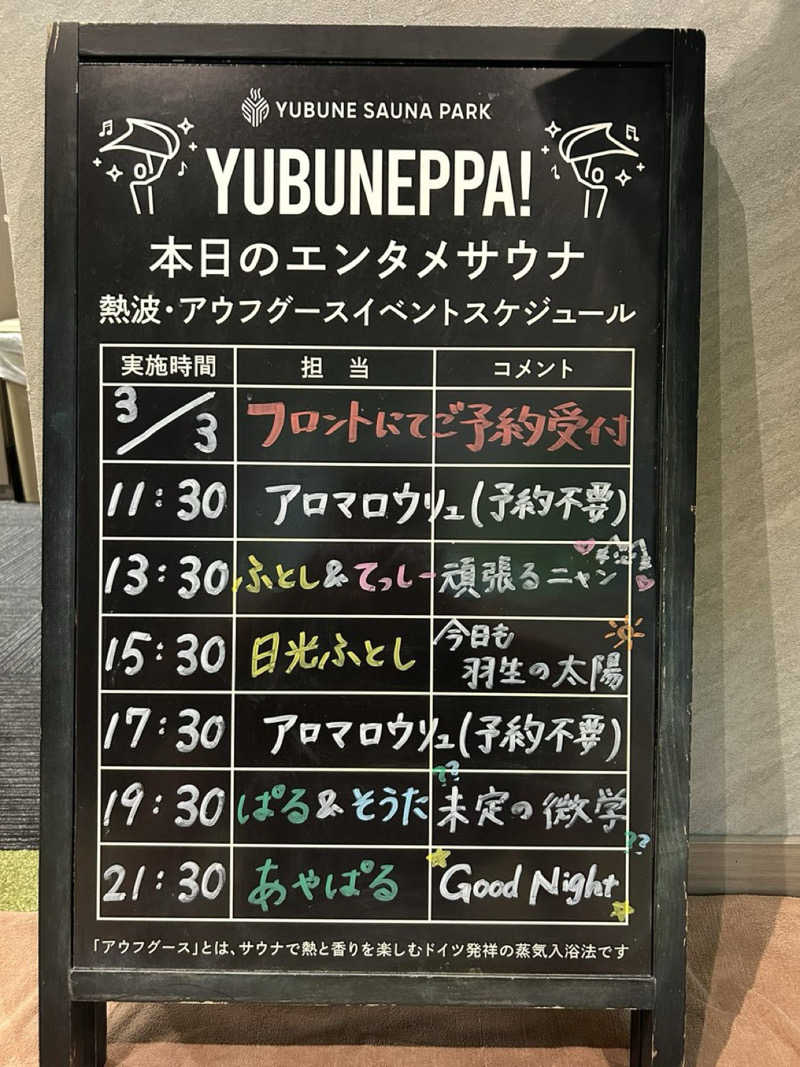 YUBUNE SAUNA PARK
YUBUNEPPA!
本日のエンタメサウナ
熱波・アウフグースイベントスケジュール
実施時間 担当 コメント
3/3 フロントにてご予約受付
11:30 アロマロウリュ(予約不要)
13:30 ふとし&てっしー 頑張るニャン
15:30 日光ふとし 今日も
羽生の太陽
17:30 アロマロウリュ(予約不要)
??
19:30 ぱる&そうた 未定の微学
??
21:30 あやぱる Good Night
「アウフグース」とは、サウナで熱と香りを楽しむドイツ発祥の蒸気入浴法です